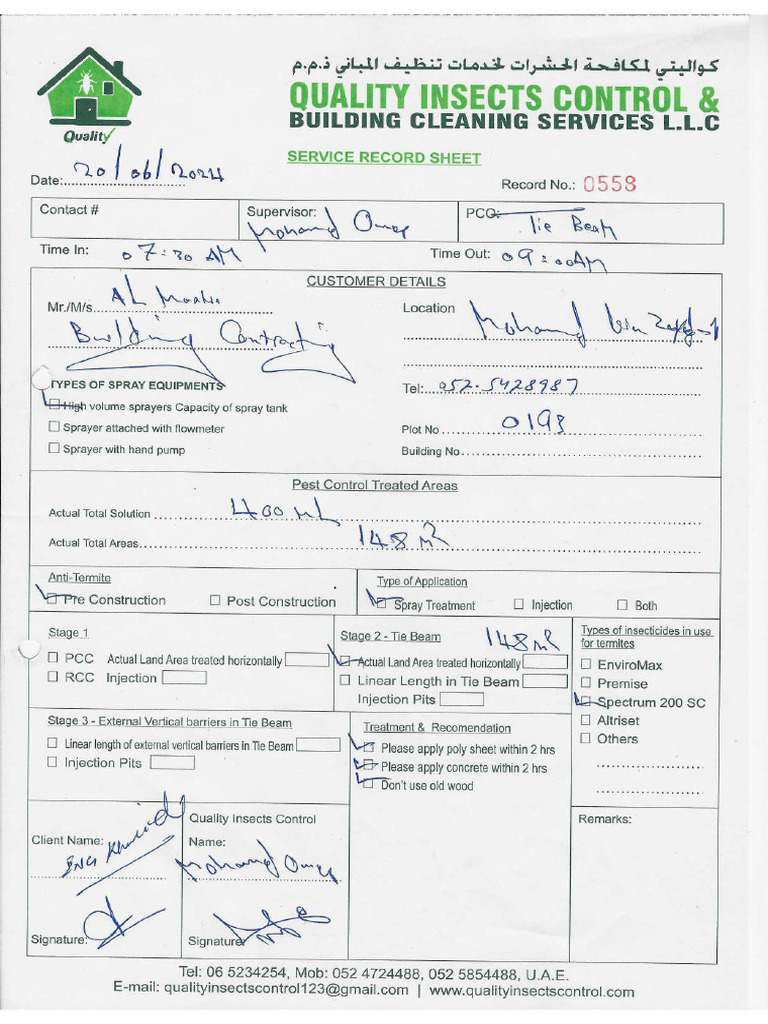 كواليتي لمكافحة الحشرات لخدمات تنظيف المباني ذ.م.م
QUALITY INSECTS CONTROL &
BUILDING CLEANING SERVICES L.L.C
Quality
SERVICE RECORD SHEET
Date: 20/06/2024
Record No.: 0558
Contact #
Supervisor: Mohamd Omer
PCO: Tie Beam
Time In: 07:30 AM
Time Out: 09:00AM
CUSTOMER DETAILS
Mr./M/s. AL
Building Contracting
Location Mohamd bin Zayed-1
TYPES OF SPRAY EQUIPMENTS
High volume sprayers Capacity of spray tank
Sprayer attached with flowmeter
Sprayer with hand pump
Tel: 052-5428987
Plot No 0193
Building No
Pest Control Treated Areas
Actual Total Solution 400 mL
Actual Total Areas 148 m²
Anti-Termite
Pre Construction
Post Construction
Type of Application
Spray Treatment
Injection
Both
Stage 1
PCC Actual Land Area treated horizontally
RCC Injection
Stage 2 - Tie Beam 148 m²
Actual Land Area treated horizontally
Linear Length in Tie Beam
Injection Pits
Types of insecticides in use
for termites
EnviroMax
Premise
Spectrum 200 SC
Altriset
Others
Stage 3 - External Vertical barriers in Tie Beam
Linear length of external vertical barriers in Tie Beam
Injection Pits
Treatment & Recomendation
Please apply poly sheet within 2 hrs
Please apply concrete within 2 hrs
Don't use old wood
Client Name: Eng Khalid
Quality Insects Control
Name: Mohamd Omer
Remarks:
Signature:
Signature:
Tel: 06 5234254, Mob: 052 4724488, 052 5854488, U.A.E.
E-mail: qualityinsectscontrol123@gmail.com | www.qualityinsectscontrol.com